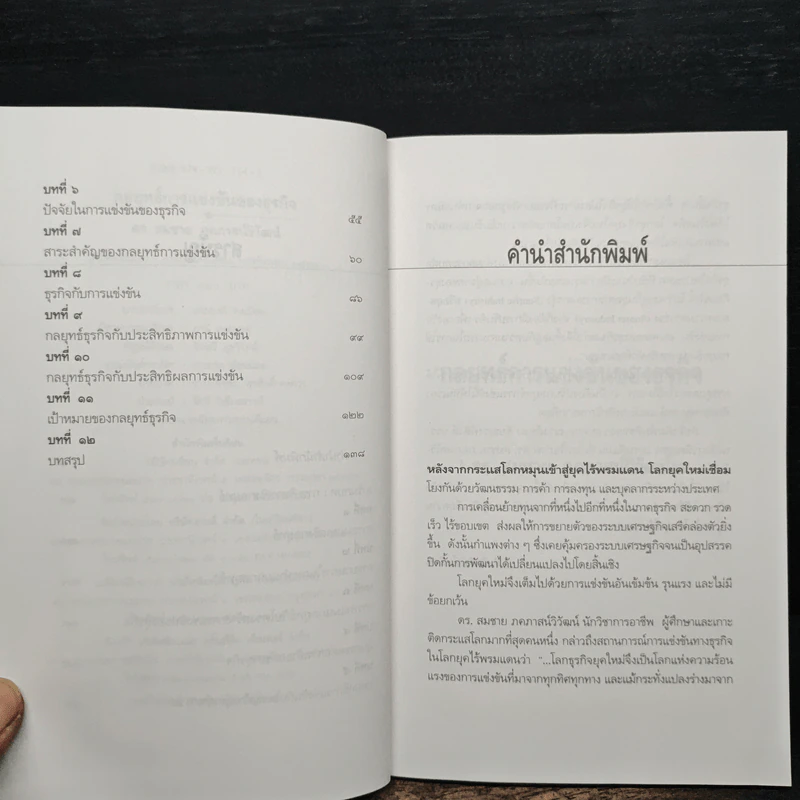 บทที่ ๖
ปัจจัยในการแข่งขันของธุรกิจ ๕๕
บทที่ ๗
สาระสำคัญของกลยุทธ์การแข่งขัน ๖๐
บทที่ ๘
ธุรกิจกับการแข่งขัน ๘๖
บทที่ ๙
กลยุทธ์ธุรกิจกับประสิทธิภาพการแข่งขัน ๙๙
บทที่ ๑๐
กลยุทธ์ธุรกิจกับประสิทธิผลการแข่งขัน ๑๐๙
บทที่ ๑๑
เป้าหมายของกลยุทธ์ธุรกิจ ๑๒๒
บทที่ ๑๒
บทสรุป ๑๓๘
คำนำสำนักพิมพ์
หลังจากกระแสโลกหมุนเข้าสู่ยุคไร้พรมแดน โลกยุคใหม่เชื่อม
โยงกันด้วยวัฒนธรรม การค้า การลงทุน และบุคลากรระหว่างประเทศ
การเคลื่อนย้ายทุนจากที่หนึ่งไปอีกที่หนึ่งในภาคธุรกิจ สะดวก รวด
เร็ว ไร้ขอบเขต ส่งผลให้การขยายตัวของระบบเศรษฐกิจเสรีคล่องตัวยิ่ง
ขึ้น ดังนั้นกำแพงต่าง ๆ ซึ่งเคยคุ้มครองระบบเศรษฐกิจจนเป็นอุปสรรค
ปิดกั้นการพัฒนาได้เปลี่ยนแปลงไปโดยสิ้นเชิง
โลกยุคใหม่จึงเต็มไปด้วยการแข่งขันอันเข้มข้น รุนแรง และไม่มี
ข้อยกเว้น
ดร. สมชาย ภคภาสน์วิวัฒน์ นักวิชาการอาชีพ ผู้ศึกษาและเกาะ
ติดกระแสโลกมากที่สุดคนหนึ่ง กล่าวถึงสถานการณ์การแข่งขันทางธุรกิจ
ในโลกยุคไร้พรมแดนว่า "...โลกธุรกิจยุคใหม่จึงเป็นโลกแห่งความร้อน
แรงของการแข่งขันที่มาจากทุกทิศทุกทาง และแม้กระทั่งแปลงร่างมาจาก